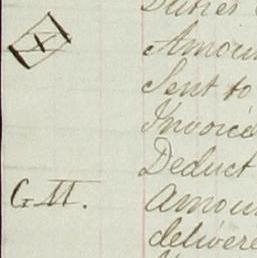 Duties
Amoun
Sent to
Invoiced
Deduct
G M. Amoun
delivere